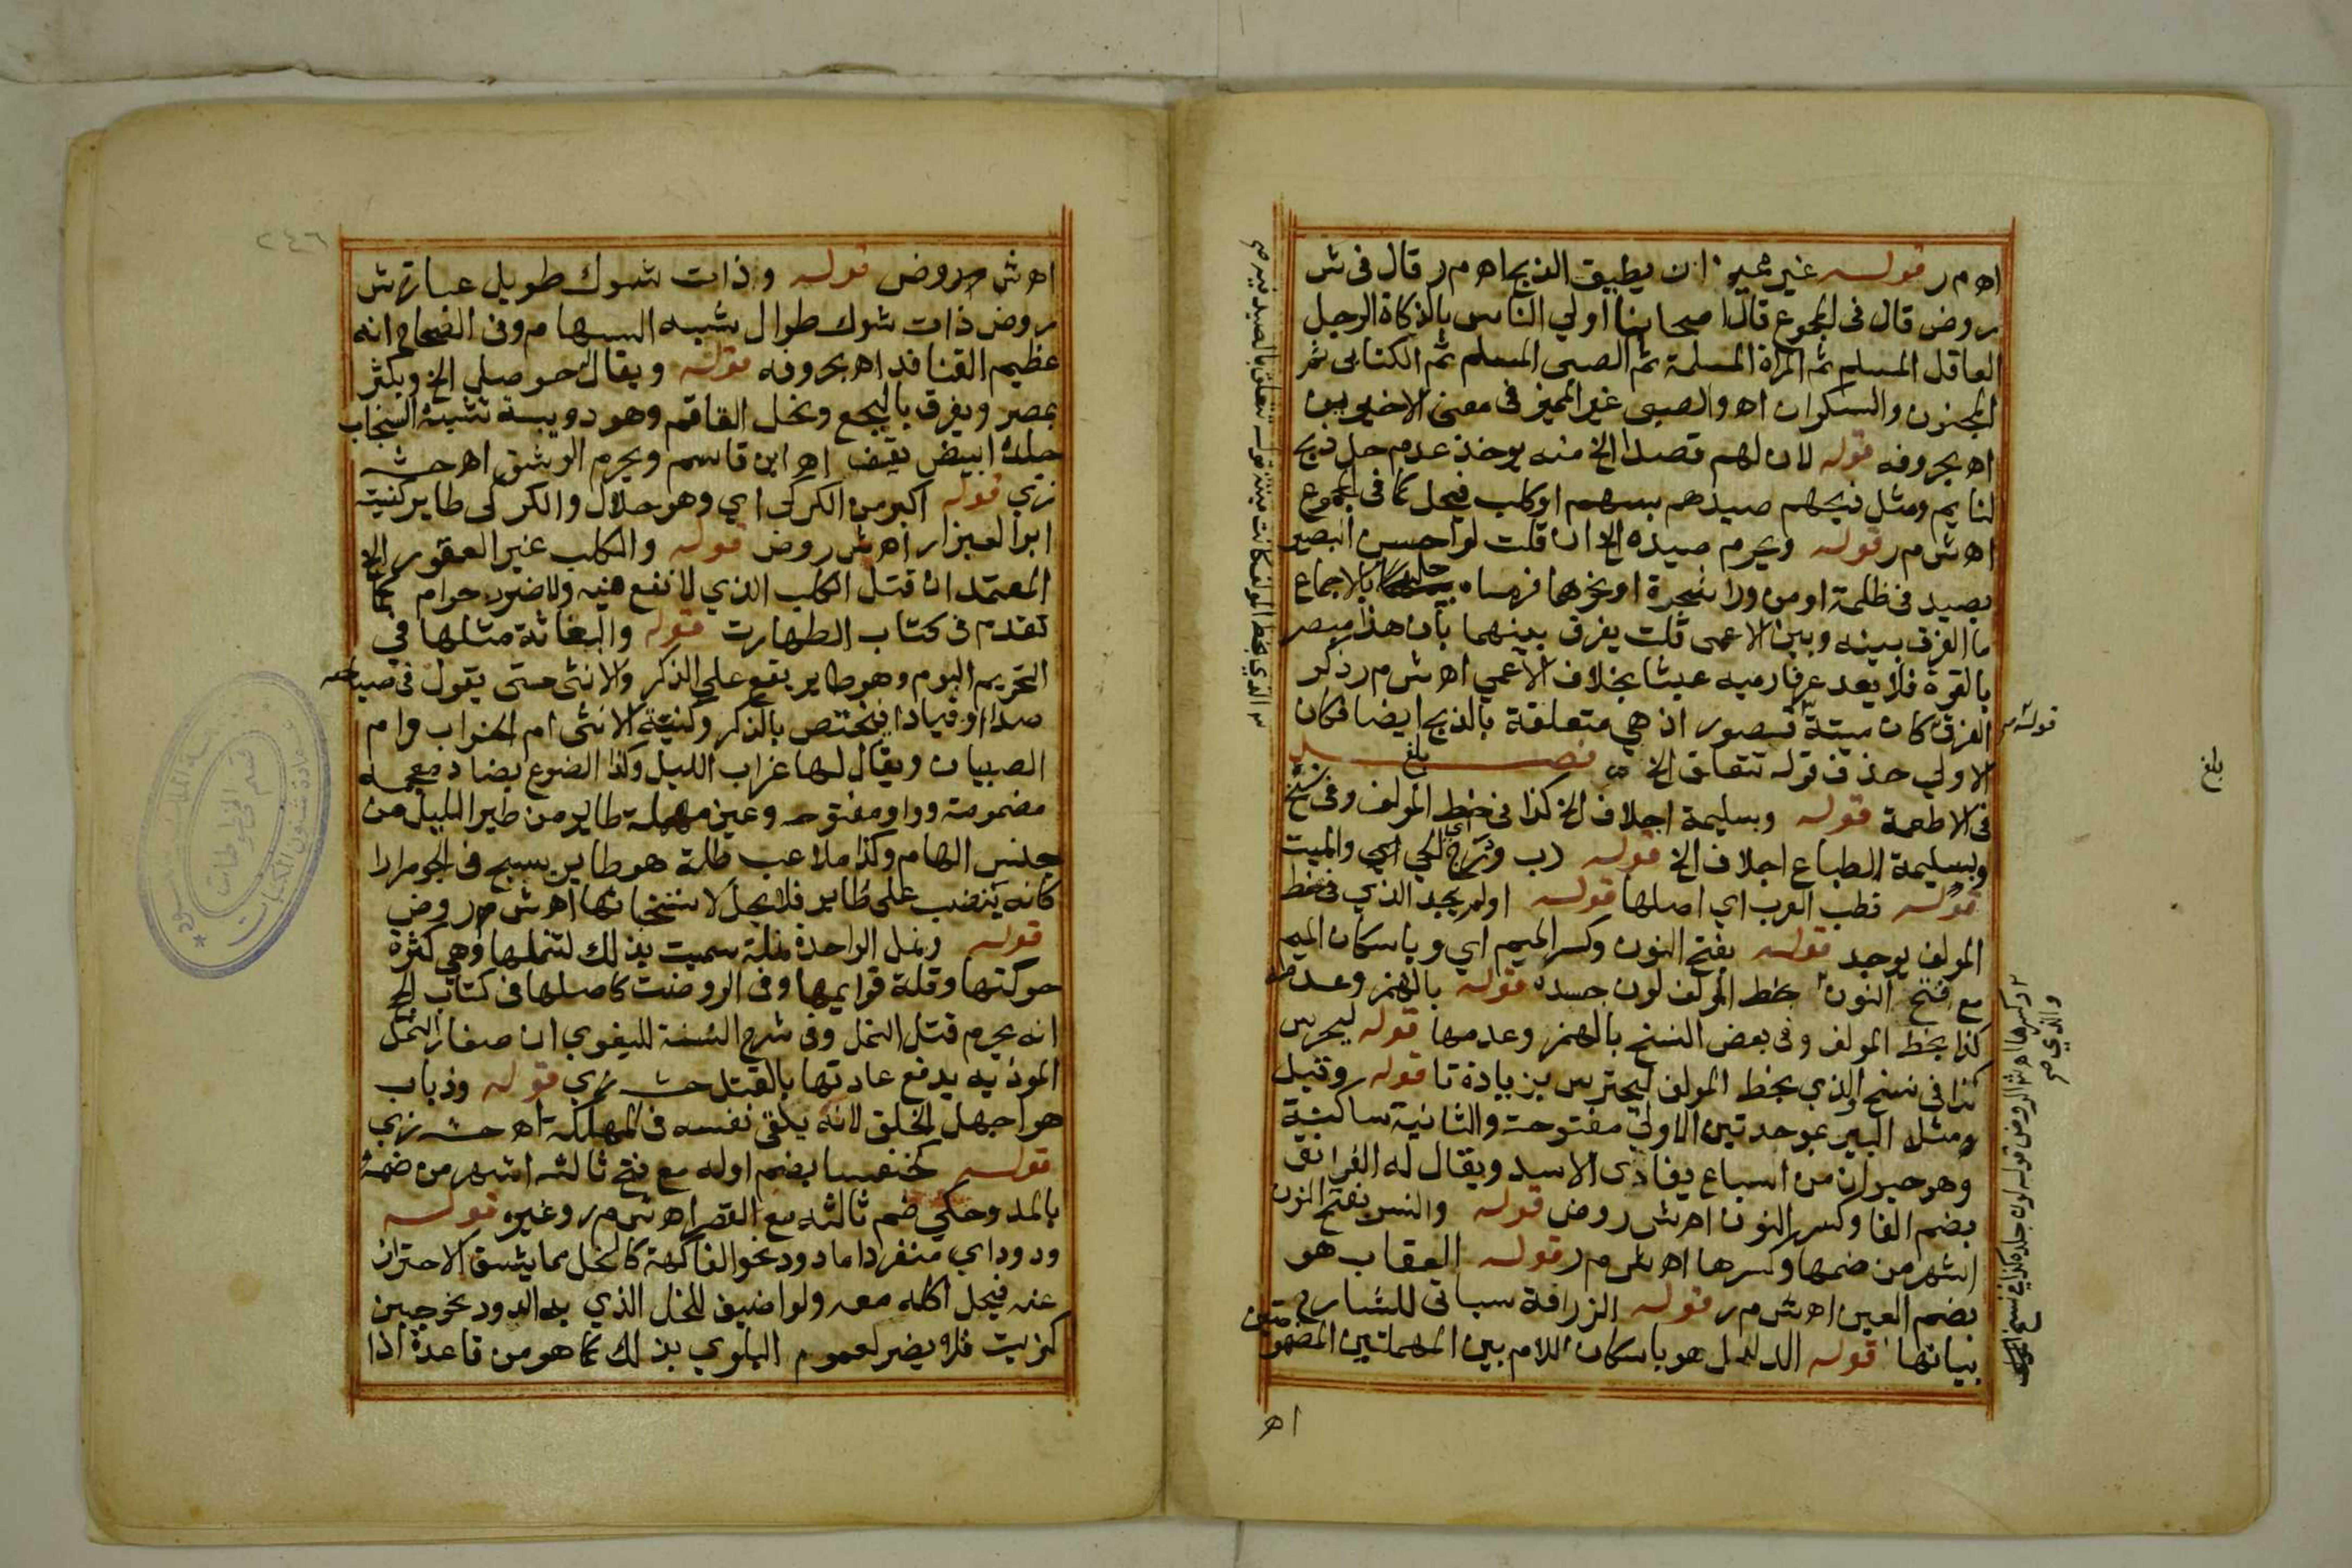 اه م ر قوله غير مميز ان يطيق الذبح اه م ر قال فى ش
روض قال فى المجموع قال اصحابنا اولي الناس بالذكاة الرجل
العاقل المسلم ثم المراة المسلمة ثم الصبى المسلم ثم الكتابى ثم
المجنون والسكران اه والصبى غير المميز فى معنى الاخيرين
اه بحروفه قوله لان لهم قصدا الخ منه يوخذ عدم حل ذبح
لنايم ومثل ذبحهم صيدهم بسهم او كلب فيحل كما فى المجموع
اه ش م ر قوله ويحرم صيده الخ ان قلت لو احسن البصير
بصيد فى ظلمة او من ورا شجرة او نحوها فرماه حل بالاجماع
ما الفرق بينه وبين الاعمى قلت يفرق بينهما بان هذا مبصر
بالقوة فلا يعد عرفا رميه عبثا بخلاف الاعمي اه ش م ر ذكر
الفرق كان ميتة قبصور اذ هي متعلقة بالذبح ايضا فكان
الاولي حذف قوله تتعلق الخ فصل
بلغ
فى الاطعمة قوله وبسليمة اجلاف الخ كذا فى خط المولف وفى نسخ
وبسليمة الطباع اجلاف الخ قوله دب ودرج الحي اي والميت
قوله قطب العرب اي اصلها قوله اولم يجد الذي فى خط
المولف يوجد قوله بفتح النون وكسر الميم اي وباسكان الميم
مع فتح النون بخط المولف لون جسده قوله بالهمز وعدمه
كذا بخط المولف وفى بعض النسخ بالهمز وعدمها قوله ليحرس
كذا فى نسخ والذي بخط المولف ليحترس بزيادة تا قوله وقيل
ومثله الببر بموحدتين الاولي مفتوحة والثانية ساكنة
وهو حيوان من السباع يفادى الاسد ويقال له الفرانق
بضم الفا وكسر النون اه ش روض قوله والنسر بفتح النون
اشهر من ضمها وكسرها اه ش م ر قوله العقاب هو
بضم العين اه ش م ر قوله الزرافة سياتى للشارح
بيانها قوله الدلدل هو باسكان اللام بين المهملتين المضمومتين
اه
بلغ
قوله
اه ش م ر روض قوله وذات شوك طويل عبارة ش
روض ذات شوك طوال يشبه السهام وفى الصحاح انه
عظيم القنافذ اه بحروفه قوله ويقال حوصلي الخ ويكثر
بمصر ويعرف بالبجع ونحل القاقم وهو دويبة تشبه السنجاب
جلده ابيض يقيض اه ابن قاسم ويحرم الوشق اه حش
زي قوله اكبر من الكركى اي وهو حلال والكركى طاير كنيته
ابو العيزار اه ش روض قوله والكلب غير العقور الخ
المعتمد ان قتل الكلب الذي لا نفع فيه ولا ضرر حرام كما
تقدم فى كتاب الطهارت قوله والبغاثة مثلها في
التحريم البوم وهو طاير يقع على الذكر والانثى حتى يقول فى صياحه
صدا او فيادا فيختص بالذكر وكنية الانثى ام الخراب وام
الصبيان ويقال لها غراب الليل وكذا الضوع بضاد معجمه
مضمومة وواو مفتوحه وعين مهملة طاير من طير الليل من
جنس الهام وكذا ملاعب ظله هو طاير يسبح فى الجو مرارا
كانه ينصب على طاير فلا يحل لاستخباثها اه ش م ر روض
قوله ونمل الواحدة نملة سميت بذلك لتنملها وهي كثرة
حركتها وقلة قوايمها وفى الروضة كاصلها فى كتاب الحج
انه يحرم قتل النمل وفى شرح السنة للبغوي ان صغار النمل
الموذيه يدفع عادتها بالقتل حش زي قوله وذباب
هو اجهل الخلق لانه يلقى نفسه فى المهلكة اه حش زي
قوله كخنفسا بضم اوله مع فتح ثالثه اشهر من ضمه
بالمد وحكي ضم ثالثه مع القصر اه ش م ر وغيره قوله
ودود اي منفردا ما دود نحو الفاكهة كالخل مما يشق الاحتراز
عنه فيحل اكله معه ولو اضيف للخل الذي به الدود نحو جبن
كزيت فلا يضر لعموم البلوي بذلك كما هو من قاعدة اذا
٢٤٦